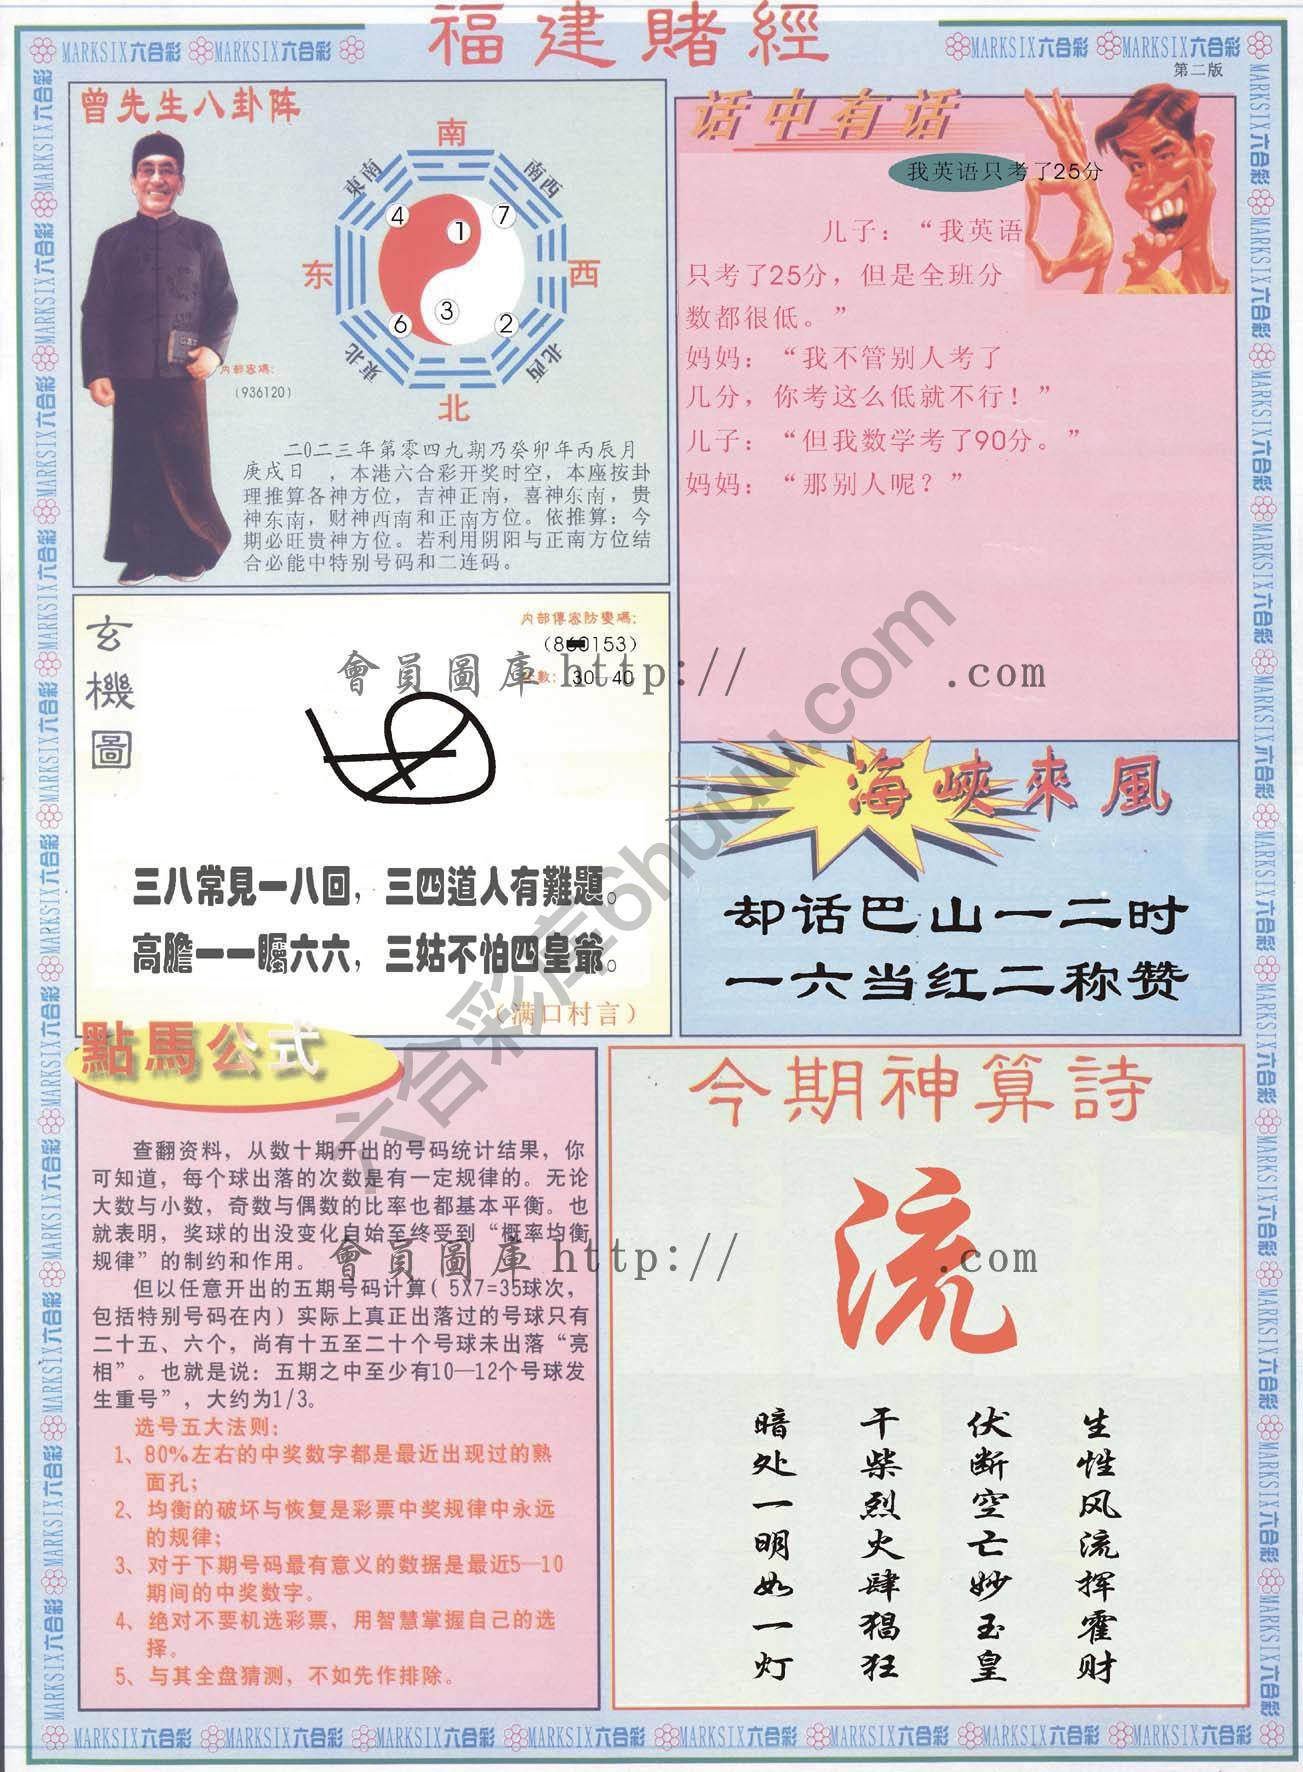 福建賭經
MARKSIX六合彩 MARKSIX六合彩
MARKSIX六合彩 MARKSIX六合彩
第二版
曾先生八卦阵
南
東南
南西
4
7
1
东
西
3
6
2
東北
北西
北
内部密碼：
（936120）
二0二三年第零四九期乃癸卯年丙辰月
庚戌日 ，本港六合彩开奖时空，本座按卦
理推算各神方位，吉神正南，喜神东南，贵
神东南，财神西南和正南方位。依推算：今
期必旺贵神方位。若利用阴阳与正南方位结
合必能中特别号码和二连码。
话中有话
我英语只考了25分
儿子：“我英语
只考了25分，但是全班分
数都很低。”
妈妈：“我不管别人考了
几分，你考这么低就不行！”
儿子：“但我数学考了90分。”
妈妈：“那别人呢？”
玄機圖
内部傳密防變碼：
（860153）
數：30-40
會員圖庫 http:// .com
三八常見一八回，三四道人有難題。
高膽一一矚六六，三姑不怕四皇爺。
（满口村言）
海峽來風
却话巴山一二时
一六当红二称赞
六合彩库6huuu.com
點馬公式
查翻资料，从数十期开出的号码统计结果，你
可知道，每个球出落的次数是有一定规律的。无论
大数与小数，奇数与偶数的比率也都基本平衡。也
就表明，奖球的出没变化自始至终受到“概率均衡
规律”的制约和作用。
但以任意开出的五期号码计算（5X7=35球次，
包括特别号码在内）实际上真正出落过的号球只有
二十五、六个，尚有十五至二十个号球未出落“亮
相”。也就是说：五期之中至少有10—12个号球发
生重号”，大约为1/3。
选号五大法则：
1、80%左右的中奖数字都是最近出现过的熟
面孔；
2、均衡的破坏与恢复是彩票中奖规律中永远
的规律；
3、对于下期号码最有意义的数据是最近5—10
期间的中奖数字。
4、绝对不要机选彩票，用智慧掌握自己的选
择。
5、与其全盘猜测，不如先作排除。
今期神算詩
流
會員圖庫 http:// .com
生性风流挥霍财
伏断空亡妙玉皇
干柴烈火肆猖狂
暗处一明如一灯
MARKSIX六合彩 MARKSIX六合彩 MARKSIX六合彩 MARKSIX六合彩 MARKSIX六合彩 MARKSIX六合彩 MARKSIX六合彩 MARKSIX六合彩